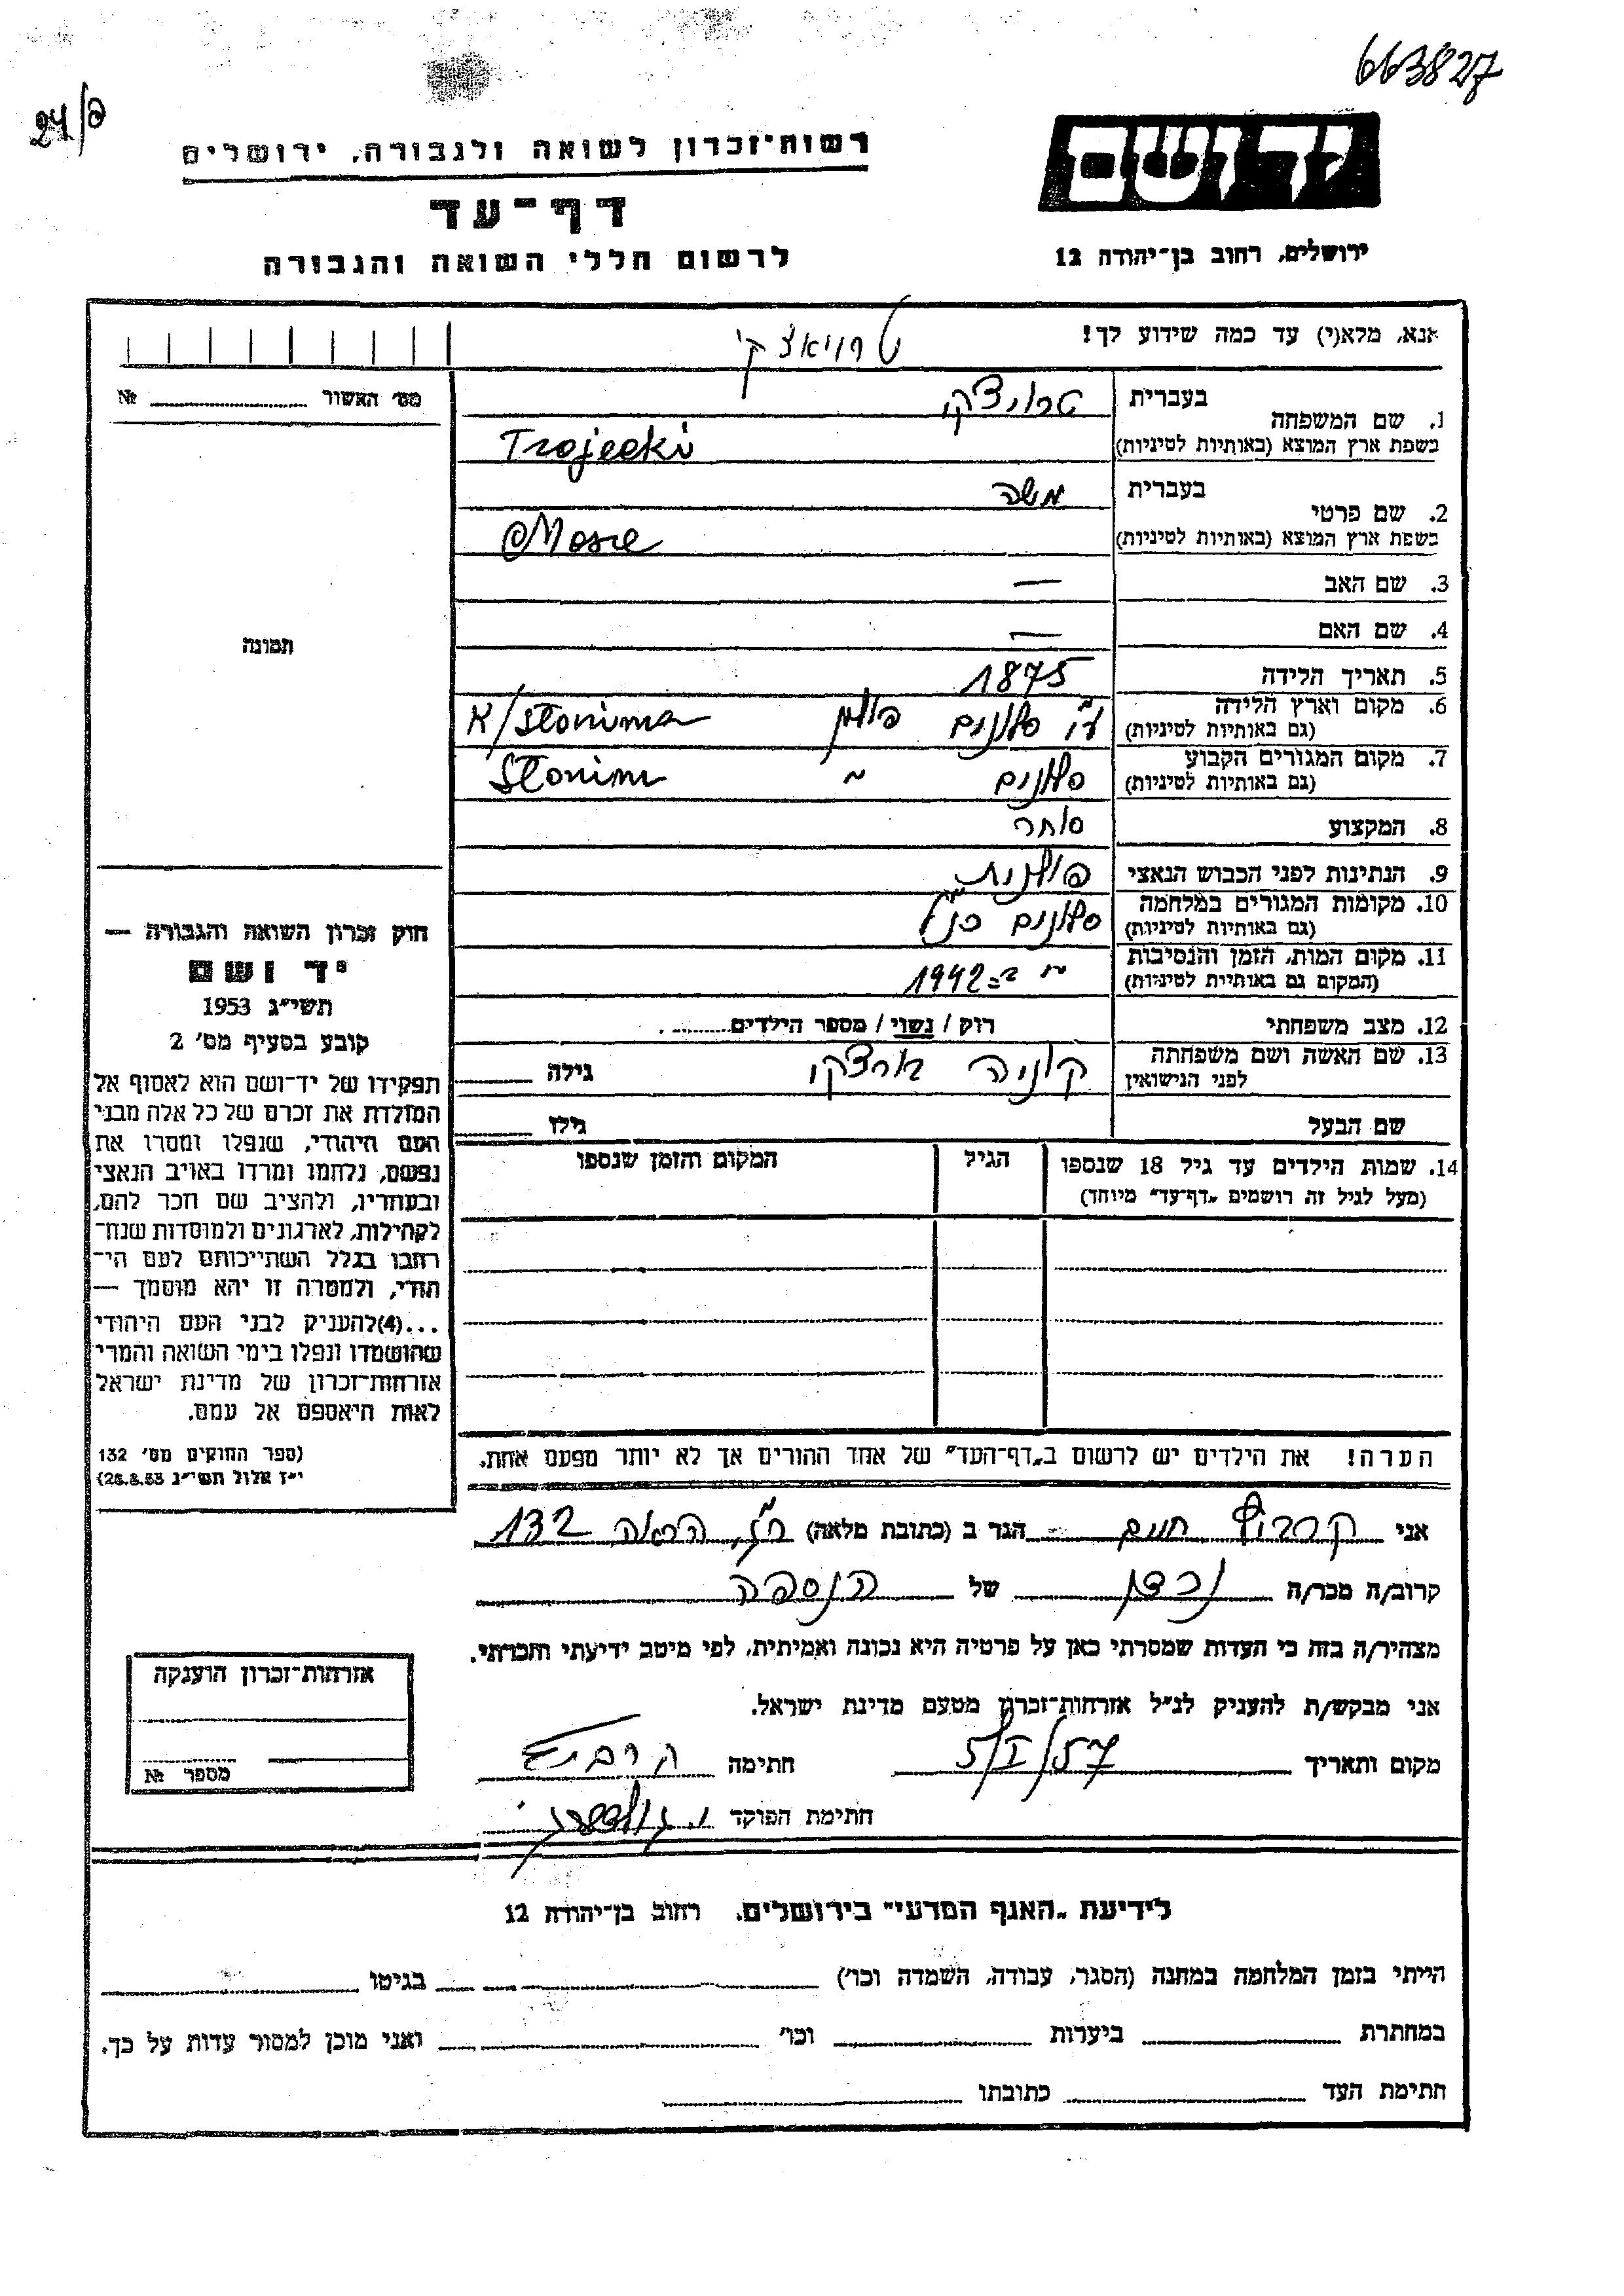 663827
24/פ
יד ושם
רשות־זכרון לשואה ולגבורה, ירושלים
דף־עד
לרשום חללי השואה והגבורה
ירושלים, רחוב בן־יהודה 12
אנא, מלא(י) עד כמה שידוע לך!
טרויאצקי
מס׳ האשור № ........
1. שם המשפחה
בעברית
טרויצקי
בשפת ארץ המוצא (באותיות לטיניות)
Trojecki
2. שם פרטי
בעברית
משה
בשפת ארץ המוצא (באותיות לטיניות)
Mosze
3. שם האב —
4. שם האם —
5. תאריך הלידה 1875
6. מקום וארץ הלידה
(גם באותיות לטיניות)
ע״י סלונים פולין K/Słonima
7. מקום המגורים הקבוע
(גם באותיות לטיניות)
סלונים ״ Słonim
8. המקצוע סוחר
9. הנתינות לפני הכבוש הנאצי פולנית
10. מקומות המגורים במלחמה
(גם באותיות לטיניות)
סלונים כנ״ל
11. מקום המות, הזמן והנסיבות
(המקום גם באותיות לטיניות)
״ ב־1942
12. מצב משפחתי רוק / נשוי / מספר הילדים ........
13. שם האשה ושם משפחתה
לפני הנישואין
גילה
שם הבעל גילו
14. שמות הילדים עד גיל 18 שנספו
(מעל לגיל זה רושמים „דף־עד״ מיוחד)
הגיל
המקום והזמן שנספו
תמונה
חוק זכרון השואה והגבורה —
יד ושם
תשי״ג 1953
קובע בסעיף מס׳ 2
תפקידו של יד־ושם הוא לאסוף אל
המולדת את זכרם של כל אלה מבני
העם היהודי, שנפלו ומסרו את
נפשם, נלחמו ומרדו באויב הנאצי
ובעוזריו, ולהציב שם וזכר להם,
לקהילות, לארגונים ולמוסדות שנח־
רחבו בגלל השתייכותם לעם הי־
הודי, ולמטרה זו יהא מוסמך —
...(4)להעניק לבני העם היהודי
שהושמדו ונפלו בימי השואה והמרי
אזרחות־זכרון של מדינת ישראל
לאות היאספם אל עמם.
(ספר החוקים מס׳ 132
י״ז אלול תשי״ג 28.8.53)
הערה! את הילדים יש לרשום ב„דף־העד״ של אחד ההורים אך לא יותר מפעם אחת.
אני חיים הגר ב (כתובת מלאה) רג, הראה 132
קרוב/ה מכר/ה נכדן של הנספה
מצהיר/ה בזה כי העדות שמסרתי כאן על פרטיה היא נכונה ואמיתית, לפי מיטב ידיעתי והכרתי.
אני מבקש/ת להעניק לנ״ל אזרחות־זכרון מטעם מדינת ישראל.
מקום ותאריך 5/I/57 חתימה
חתימת הפוקד
אזרחות־זכרון הוענקה
מספר №
לידיעת „האגף המדעי״ בירושלים, רחוב בן־יהודה 12
הייתי בזמן המלחמה במחנה (הסגר, עבודה, השמדה וכו׳) בגיטו
במחתרת ביערות וכו׳ ואני מוכן למסור עדות על כך.
חתימת העד כתובתו